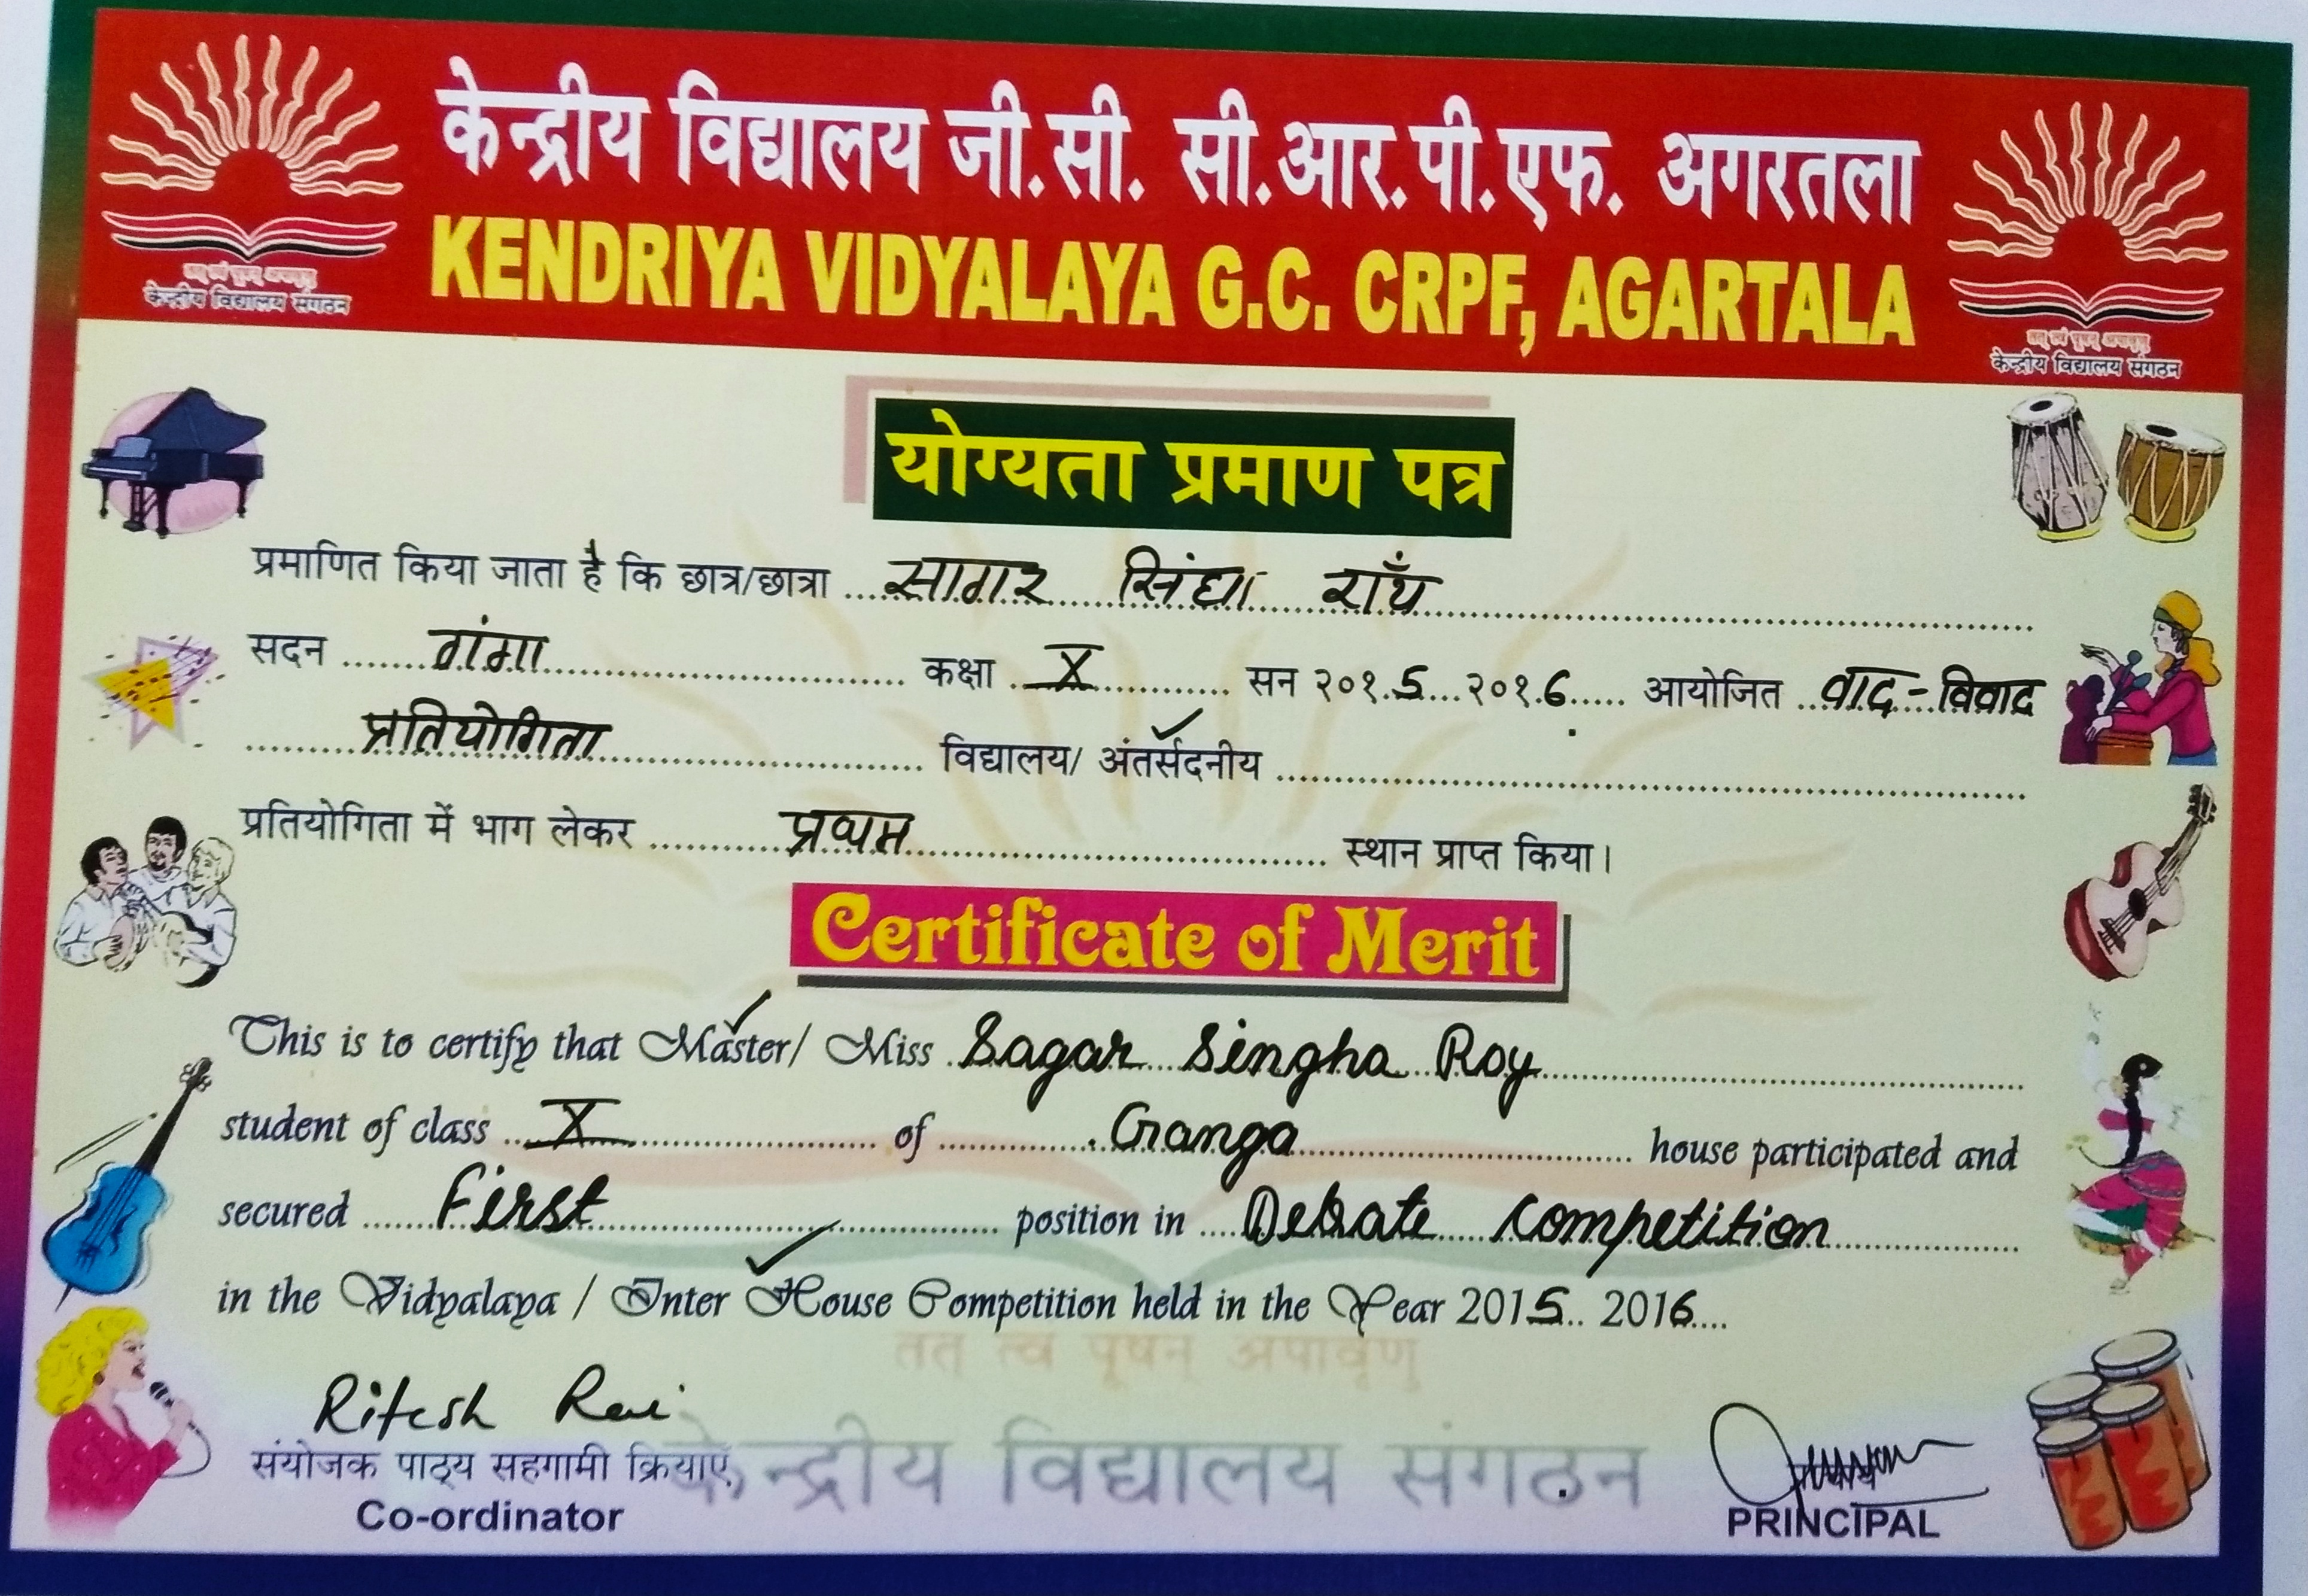 केन्द्रीय विद्यालय जी.सी. सी.आर.पी.एफ. अगरतला
KENDRIYA VIDYALAYA G.C. CRPF, AGARTALA
तत् त्वं पूषन् अपावृणु
केन्द्रीय विद्यालय संगठन
तत् त्वं पूषन् अपावृणु
केन्द्रीय विद्यालय संगठन
योग्यता प्रमाण पत्र
प्रमाणित किया जाता है कि छात्र/छात्रा सागर सिंघा रॉय
सदन गंगा कक्षा X सन २०१5 २०१6 आयोजित वाद-विवाद
प्रतियोगिता विद्यालय/ अंतर्सदनीय
प्रतियोगिता में भाग लेकर प्रथम स्थान प्राप्त किया।
Certificate of Merit
This is to certify that Master/ Miss Sagar Singha Roy
student of class X of Ganga house participated and
secured First position in Debate Competition
in the Vidyalaya / Inter House Competition held in the Year 2015 2016
तत् त्वं पूषन् अपावृणु
केन्द्रीय विद्यालय संगठन
Ritesh Rai
संयोजक पाठ्य सहगामी क्रियाएँ
Co-ordinator
PRINCIPAL